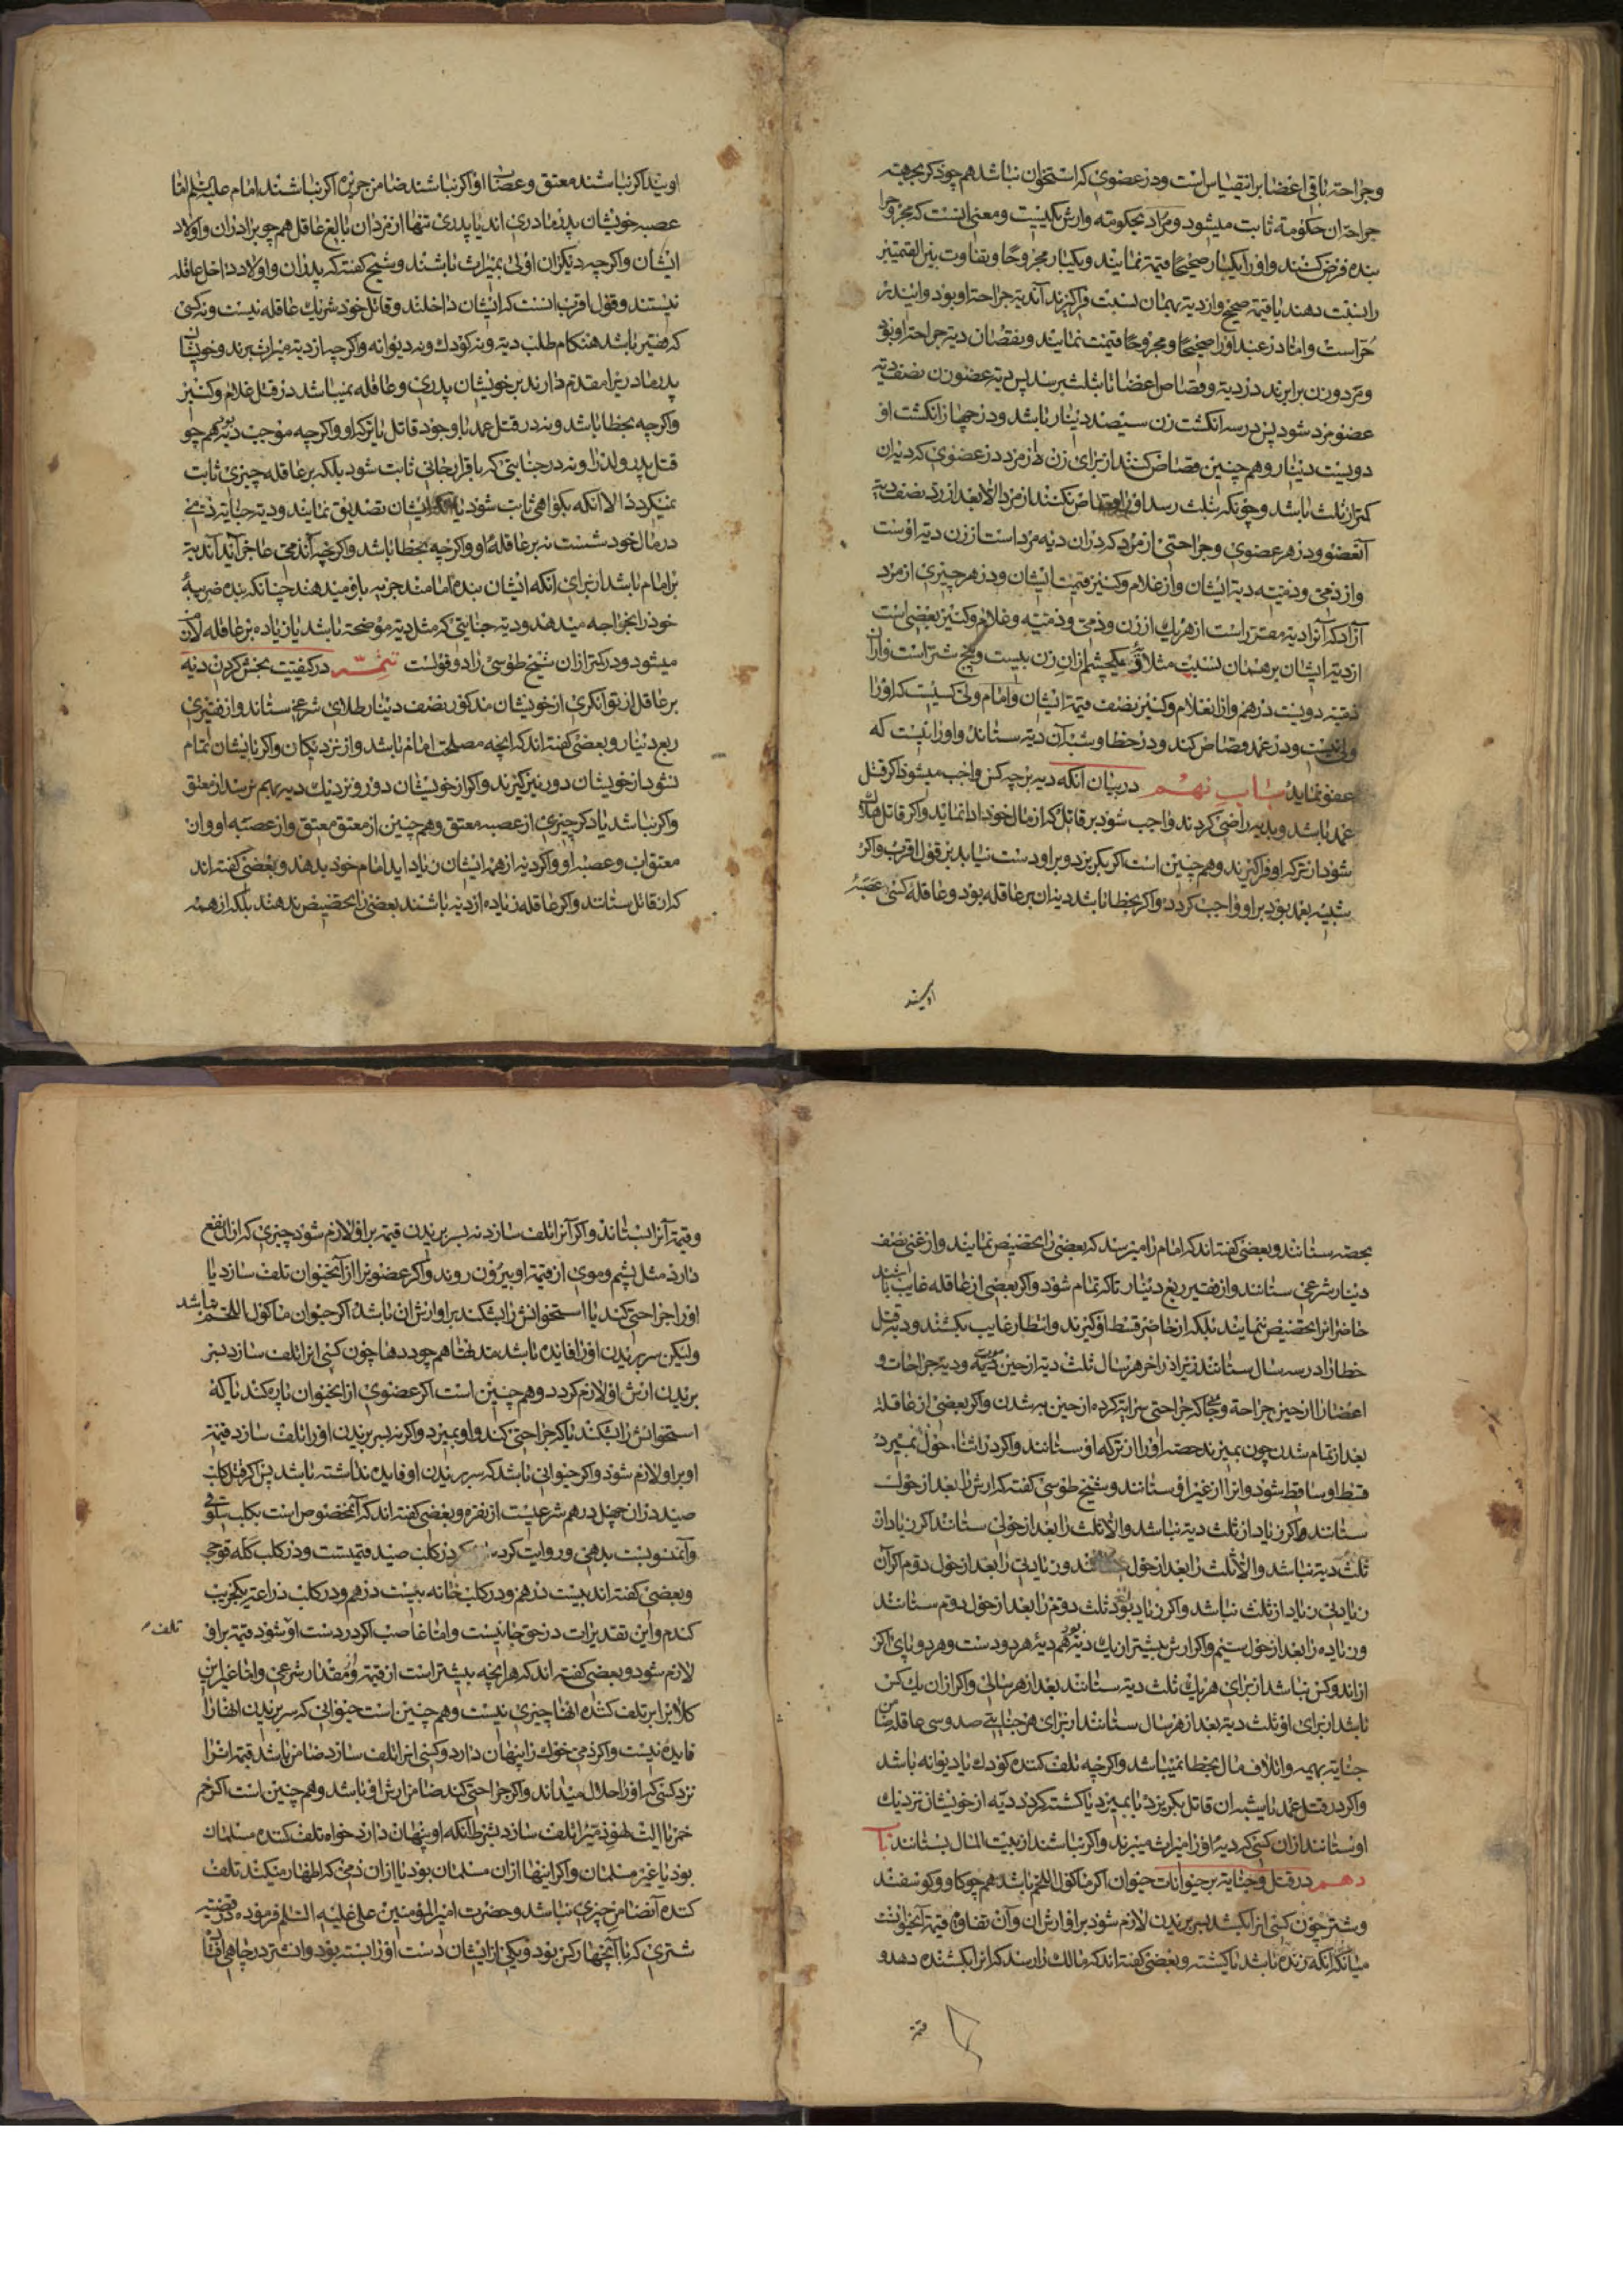 وجراحة باقی اعضا براینقیاس است ودر عضوی که استخوان نباشد هم چو ذکر بجهة
جراحة ان حکومة ثابت میشود ومراد بحکومة وارش یکیست ومعنی اینست که مجروح را
بنده فرض کنند واورا یکبار صحیحا قیمة نمایند ویکبار مجروحا وبتفاوت بین القیمتین
را نسبت دهند با قیمة صحیح واز دیة بهمان نسبت فراگیرند آن دیة جراحة او بود واین در
حر است واما در عبد اورا صحیحا ومجروحا قیمت نمایند ونقصان دیة جراحة او بود
ومرد وزن برابرند در دیة وقصاص اعضا تا بثلث برسد پس دیة عضو زن نصف دیة
عضو مرد شود پس در سه انگشت زن سیصد دینار باشد ودر چهار انگشت او
دویست دینار وهم چنین قصاص کنند از برای زن از مرد در عضوی که دیة ان
کمتر از ثلث باشد وچونکه بثلث رسد او را قصاص نکنند از مرد الا بعد از رد نصف دیة
آنعضو ودر هر عضوی وجراحتی از مرد که دران دیة مرد است از زن دیة اوست
واز ذمی وذمیه دیة ایشان واز غلام وکنیز قیمت ایشان ودر هر چیزی از مرد
آزاد که آنرا دیة مقرر است از هر یک از زن وذمی وذمیه وغلام وکنیز بعضی است
از دیة ایشان بر همان نسبت مثلا در یکچشم از ان زن بیست وپنج شتر است واز ان
ذمیه دویست درهم واز ان غلام وکنیز نصف قیمة ایشان وامام ولی کسیست که اورا
ولی نیست ودر عمد قصاص کند ودر خطا وشبه آن دیة ستاند واورا نیست که
عفو نماید باب نهم در بیان آنکه دیه بر چه کس واجب میشود اگر قتل
عمد باشد وبدیه راضی گردند واجب شود بر قاتل که از مال خود ادا نماید واگر قاتل هلاک
شود از ترکه او فراگیرند وهم چنین است اگر بگریزد وبر او دست نیابد بر قول اقرب واگر
شبیه بعمد بود بر او واجب گردد واگر بخطا باشد دیة ان بر عاقله بود وعاقله کسی عصبه
اویند
اویند اگر نباشند معتق وعصبات او اگر نباشند ضامن جریره اگر نباشند امام علیه السلم اما
عصبه خویشان پدر مادری اند یا پدری تنها از مردان بالغ عاقل هم چو برادران واولاد
ایشان واگرچه دیگران اولی بمیراث باشند وشیخ گفته که پدران واولاد داخل عاقله
نیستند وقول اقرب انست که ایشان داخلند وقاتل خود شریک عاقله نیست ونه کسی
که فقیر باشد هنگام طلب دیة ونه کودک ونه دیوانه واگرچه از دیة میراث برند وخویشان
پدر مادریرا مقدم دارند بر خویشان پدری وعاقله نمیباشد در قتل غلام وکنیز
واگرچه بخطا باشد ونه در قتل عمد با وجود قاتل یا ترکه او واگرچه موجب دیة بود هم چو
قتل پدر ولد را ونه در جنایتی که باقرار جانی ثابت شود بلکه بر عاقله چیزی ثابت
نمیگردد الا آنکه بگواهی ثابت شود یا ایشان تصدیق نمایند ودیة جنایة ذمی
در مال خود شست نه بر عاقلهٔ او واگرچه بخطا باشد واگرچه آن ذمی عاجز آید آن دیة
بر امام باشد از برای آنکه ایشان بندهٔ امامند جزیه باو میدهند چنانکه بنده ضریبهٔ
خود را بخواجه میدهد ودیة جنایتی که مثل دیة موضحة باشد یا زیاده بر عاقله لازم
میشود ودر کمتر ازان شیخ طوسی را دو قولست تتمه در کیفیت بخش کردن دیه
بر عاقله از توانگری از خویشان مذکور نصف دینار طلای شرعی ستاند واز فقیری
ربع دینار وبعضی گفته اند که انچه مصلحت امام باشد واز نزدیکان واگر بایشان تمام
نشود از خویشان دور نیز گیرند واگر از خویشان دور ونزدیک دیه بهم نرسد از معتق
واگر نباشد یاد کر چیزی از عصبه معتق وهم چنین از معتق معتق واز عصبه او وان
معتق اب وعصبه او واگر دیه از همه ایشان زیاد اید امام خود بدهد وبعضی گفته اند
که ان قاتل ستاند واگر عاقله زیاده از دیه باشند بعضی را تخصیص ندهند بلکه از همه
بحصه ستانند وبعضی گفته اند که امام را میرسد که بعضی را تخصیص نمایند واز غنی نصف
دینار شرعی ستانند واز فقیر ربع دینار تا که تمام شود واگر بعضی از عاقله غایب باشند
حاضرانرا تخصیص ننمایند بلکه از حاضر قسط او گیرند وانتظار غایب بکشند ودیة قتل
خطا را در سه سال ستانند نزد آخر هر سال ثلث دیة از حین مردن ودیة جراحات و
اعضا را از حین جراحة وجا که جراحتی سرایة کرده از حین به شدن واگر بعضی از عاقله
بعد از تمام شدن چون بمیرند حصه اورا از ترکه او ستانند واگر در اثناء حول نمیرد
قسط او ساقط شود وانرا از غیر او ستانند وشیخ طوسی گفته که ارش را بعد از حول
ستانند واگر زیاد از ثلث دیة نباشد والا ثلث را بعد از حولی ستانند اگر زیاد از
ثلث دیة نباشد والا ثلث را بعد از حول وزیادتی را بعد از حول دوم اگر آن
زیادتی زیاد از ثلث نباشد واگر زیاد بود ثلث دوم را بعد از حول دوم ستانند
وزیاده را بعد از حول سیم واگر ارش بیشتر از یک دیة بود هم دیهٔ هر دو دست وهر دو پای اگر
از اند وکس نباشد از برای هر یک ثلث دیة ستانند بعد از هر سالی واگر از ان یک کس
باشد از برای او ثلث دیة بعد از هر سال ستانند از برای هر جنایتی صد وسی عاقله ضامن
جنایة بهیمه واتلاف مال بخطا نمیباشد واگرچه تلف کننده کودک یا دیوانه باشد
واگر در قتل عمد یا شبه ان قاتل بگریزد یا بمیرد یا کشته گردد دیة از خویشان نزدیک
او ستانند ازان کسی که دیهٔ اورا میراث میبرند واگر نباشند از بیت المال بستانند باب
دهم در قتل وجنایة بر حیوانات حیوان اگر ماکول اللحم باشد هم چو گاو وگوسفند
وشتر چون کسی انرا بکشد بسر بریدن لازم شود بر او ارش ان وآن تفاوة قیمة آنحیوانست
میان آنکه زنده باشد یا کشته وبعضی گفته اند که مالک را رسد که انرا بکشنده دهد و
قیمة
وقیمة آنرا بستاند واگر آنرا تلف سازد نه بسر بریدن قیمة بر او لازم شود چیزی که ازان نفع
دارد مثل پشم وموی از قیمة او بیرون روند واگر عضویرا از آنحیوان تلف سازد یا
اورا جراحتی کند یا استخوانش را بشکند بر او ارش ان باشد واگر حیوان ماکول اللحم نباشد
ولیکن سر بریدن اورا فایده باشد هم چو ددها چون کسی انرا تلف سازد بسر
بریدن ارش او لازم گردد وهم چنین است اگر عضوی از انحیوان پاره کند یا که
استخوانش را بشکند یا که جراحتی کند واو بمیرد واگر نه بسر بریدن اورا تلف سازد قیمة
او بر او لازم شود واگر حیوانی باشد که سر بریدن او فایده نداشته باشد پس اگر قتل کلب
صید دران چهل درهم شرعیست از نقره وبعضی گفته اند که آنمخصوص است بکلب سلوقی
وآن منسوبست بدهی وروایت کرده در کلب صید قیمتست ودر کلب گله قوچی
وبعضی گفته اند بیست درهم ودر کلب خانه بیست درهم ودر کلب زراعة یکجریب
گندم واین تقدیرات در حق جانیست واما غاصب اگر در دست او شود قیمة بر او
تلف
لازم شود وبعضی گفته اند که هرانچه بیشتر است از قیمة ومقدار شرعی واما غیر این
کلاب بر تلف کننده انها چیزی نیست وهم چنین است حیوانی که سر بریدن انها را
فایده نیست واگر ذمی خوک را پنهان دارد وکسی انرا تلف سازد ضامن باشد قیمة انرا
نزد کسی که اورا حلال میداند واگر جراحتی کند ضامن ارش او باشد وهم چنین است اگر خم
خمر یا الت لهو ذمیرا تلف سازد بشرط آنکه او پنهان دارد خواه تلف کننده مسلمان
بود یا غیر مسلمان واگر اینها ازان مسلمان بود یا ازان ذمی که اظهار میکند تلف
کننده آنضامن چیزی نباشد وحضرت امیرالمؤمنین علی علیه السلم فرموده در قضیه
شتری که با آنچهار کس بود ویکی از ایشان دست اورا بسته بود وانشتر در چاهی افتاد